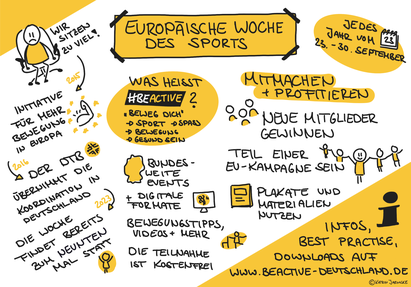 EUROPÄISCHE WOCHE
DES SPORTS
WIR
SITZEN
ZU VIEL!
JEDES
JAHR VOM
23
23. - 30. SEPTEMBER
2015
INITIATIVE
FÜR MEHR
BEWEGUNG
IN EUROPA
2016
DER DTB
ÜBERNIMMT DIE
KOORDINATION IN
DEUTSCHLAND
2023
DIE WOCHE
FINDET BEREITS
ZUM NEUNTEN
MAL STATT
WAS HEISST
#BEACTIVE ?
"BEWEG DICH"
→ SPORT → SPASS
→ BEWEGUNG
→ GESUND SEIN
BUNDES-
WEITE
EVENTS
+ DIGITALE
FORMATE
BEWEGUNGSTIPPS,
VIDEOS + MEHR
DIE TEILNAHME
IST KOSTENFREI
MITMACHEN
+ PROFITIEREN
NEUE MITGLIEDER
GEWINNEN
TEIL EINER
EU-KAMPAGNE SEIN
PLAKATE UND
MATERIALIEN
NUTZEN
INFOS,
BEST PRACTISE,
DOWNLOADS AUF
WWW.BEACTIVE-DEUTSCHLAND.DE